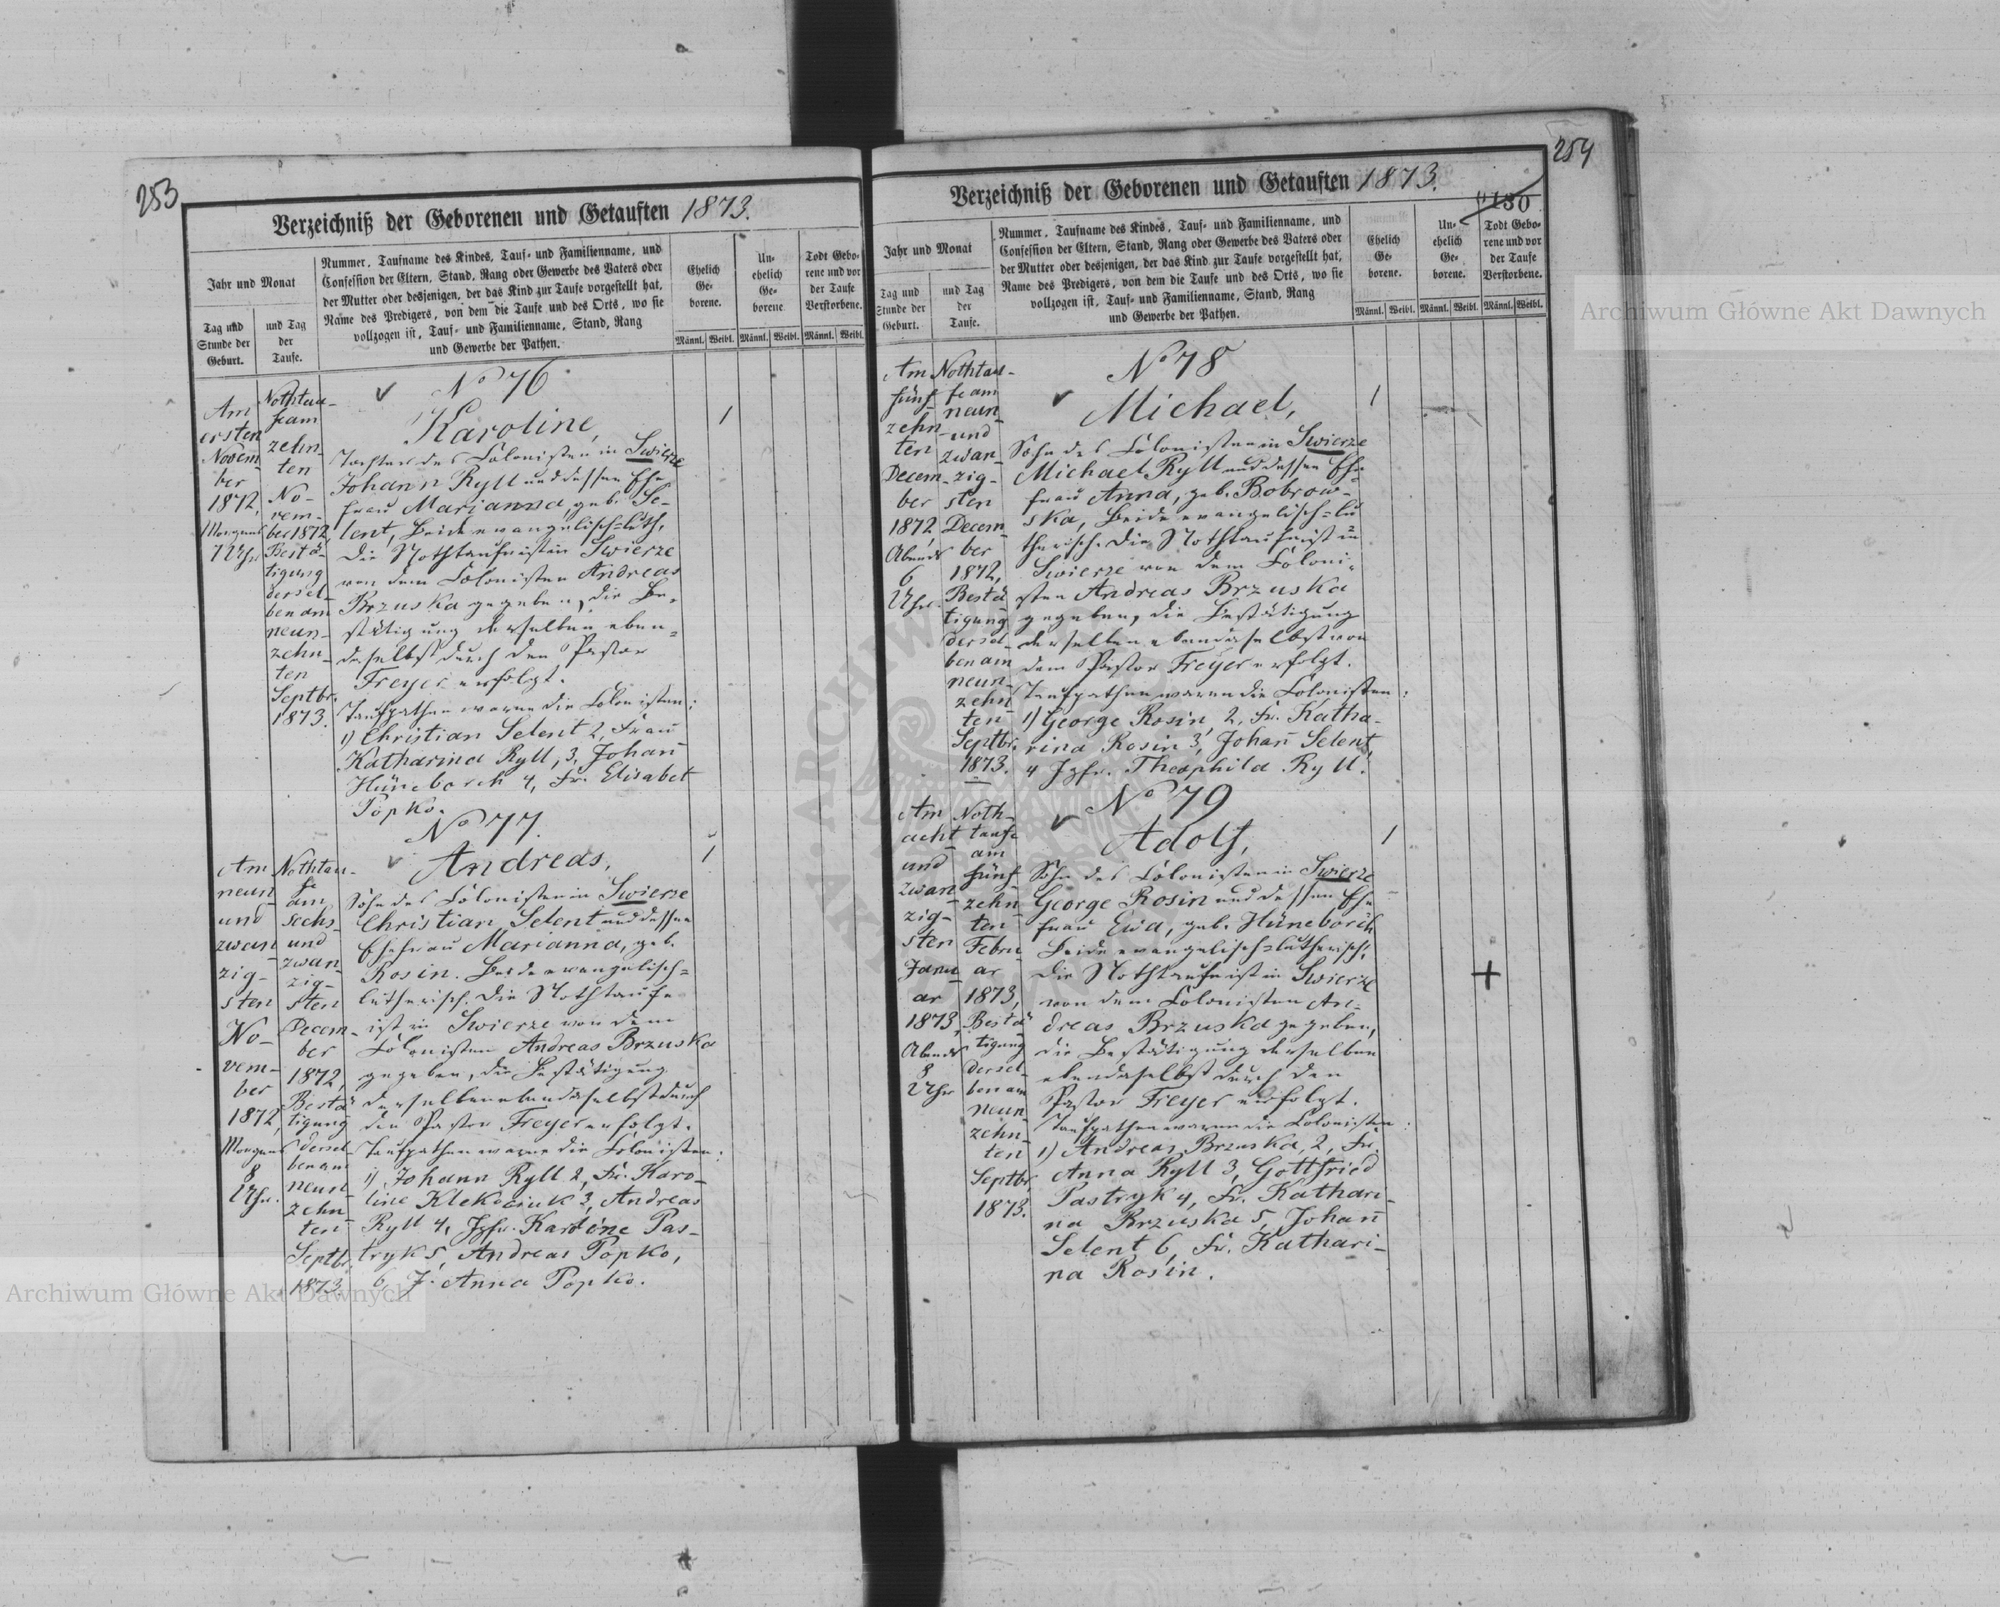 253
Verzeichniß der Geborenen und Getauften 1873.
Jahr und Monat
Tag und
Stunde der
Geburt.
und Tag
der
Taufe.
Nummer, Taufname des Kindes, Tauf- und Familienname, und
Confession der Eltern, Stand, Rang oder Gewerbe des Vaters oder
der Mutter oder desjenigen, der das Kind zur Taufe vorgestellt hat,
Name des Predigers, von dem die Taufe und des Orts, wo sie
vollzogen ist, Tauf- und Familienname, Stand, Rang
und Gewerbe der Pathen.
Ehelich
Ge-
borene.
Un-
ehelich
Ge-
borene
Todt Gebo-
rene und vor
der Taufe
Verstorbene.
Männl. Weibl. Männl. Weibl. Männl. Weibl.
Am
ersten
Novem-
ber
1872,
Morgens
7 Uhr
Nothtau-
fe am
zehn-
ten
No-
vem-
ber 1872,
Bestä-
tigung
dersel-
ben am
neun-
zehn-
ten
Septbr.
1873.
No 76
Karoline,
Tochter des Colonisten in Swierze
Johann Ryll und dessen Ehe-
frau Marianna, geb. Se-
lent, Beide evangelisch-luth.
Die Nothtaufe ist in Swierze
von dem Colonisten Andreas
Brzuska gegeben, die Be-
stätigung derselben eben-
daselbst durch den Pastor
Freyer erfolgt.
Taufpathen waren die Colonisten:
1) Christian Selent 2, Frau
Katharina Ryll, 3, Johan̄
Hüneborch 4, Fr. Elisabet
Popko.
1
Am
neun-
und
zwan-
zig-
sten
No-
vem-
ber
1872,
Morgens
8
Uhr.
Nothtau-
fe
am
sechs-
und
zwan-
zig-
sten
Decem-
ber
1872,
Bestä-
tigung
dersel-
ben am
neun-
zehn-
ten
Septbr.
1873.
No 77.
Andreas,
Sohn des Colonisten in Swierze
Christian Selent und dessen
Ehefrau Marianna, geb.
Rosin. Beide evangelisch-
lutherisch. Die Nothtaufe
ist in Swierze von dem
Colonisten Andreas Brzuska
gegeben, die Bestätigung
derselben ebendaselbst durch
den Pastor Freyer erfolgt.
Taufpathen waren die Colonisten:
1) Johann Ryll 2, Fr. Karo-
line Klekociuk 3, Andreas
Ryll 4, Jgfr. Karoline Pas-
tryk 5, Andreas Popko,
6, J. Anna Popko.
1
254
Verzeichniß der Geborenen und Getauften 1873.
130
Jahr und Monat
Tag und
Stunde der
Geburt.
und Tag
der
Taufe.
Nummer, Taufname des Kindes, Tauf- und Familienname, und
Confession der Eltern, Stand, Rang oder Gewerbe des Vaters oder
der Mutter oder desjenigen, der das Kind zur Taufe vorgestellt hat,
Name des Predigers, von dem die Taufe und des Orts, wo sie
vollzogen ist, Tauf- und Familienname, Stand, Rang
und Gewerbe der Pathen.
Ehelich
Ge-
borene.
Un-
ehelich
Ge-
borene.
Todt Gebo-
rene und vor
der Taufe
Verstorbene.
Männl. Weibl. Männl. Weibl. Männl. Weibl.
Am
fünf-
zehn-
ten
Decem-
ber
1872,
Abends
6
Uhr.
Nothtau-
fe am
neun-
und
zwan-
zig-
sten
Decem-
ber
1872,
Bestä-
tigung
dersel-
ben am
neun-
zehn-
ten
Septbr.
1873.
No 78
Michael,
Sohn des Colonisten in Swierze
Michael Ryll und dessen Ehe-
frau Anna, geb. Bobrow-
ska, Beide evangelisch-lu-
therisch. Die Nothtaufe ist in
Swierze von dem Coloni-
sten Andreas Brzuska
gegeben, die Bestätigung
derselben ebendaselbst von
dem Pastor Freyer erfolgt.
Taufpathen waren die Colonisten:
1) George Rosin, 2, Fr. Katha-
rina Rosin 3, Johan̄ Selent,
4 Jgfr. Theophila Ryll.
1
Am
acht
und
zwan-
zig-
sten
Janu-
ar
1873,
Abends
8
Uhr
Noth-
taufe
am
fünf-
zehn-
ten
Febru-
ar
1873,
Bestä-
tigung
dersel-
ben am
neun-
zehn-
ten
Septbr.
1873.
No 79
Adolf,
Sohn des Colonisten in Swierze
George Rosin und dessen Ehe-
frau Ewa, geb. Hüneborch
Beide evangelisch-lutherisch,
Die Nothtaufe ist in Swierze
von dem Colonisten An-
dreas Brzuska gegeben,
die Bestätigung derselben
ebendaselbst durch den
Pastor Freyer erfolgt.
Taufpathen waren die Colonisten:
1) Andreas Brzuska, 2, Fr.
Anna Ryll 3, Gottfried
Pastryk 4, Fr. Kathari-
na Brzuska 5, Johan̄
Selent 6, Fr. Kathari-
na Rosin.
1
Archiwum Główne Akt Dawnych
Archiwum Główne Akt Dawnych